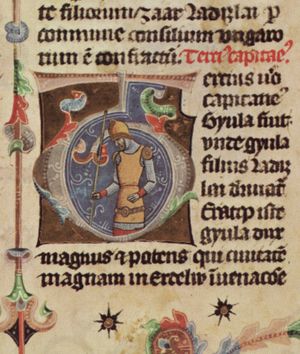 te filiorum zaar ladizlai p
commune consilium vngaro
rum ē confractū. Terci' capitae'
ercius u͛o
capitane'
Gyula fuit
vnde gyula
filius ladiz
lai dicitur
Erat q͛ iste
gyula dux
magnus et potens qui ciuitatē
magnam in erdelw i uenacōe